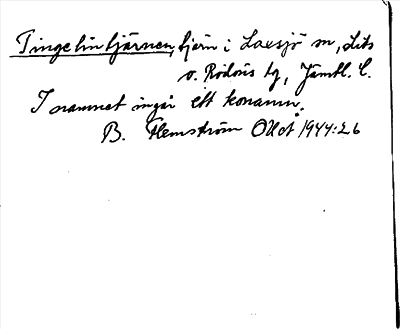 Tingelintjärnen, tjärn i Laxsjö sn, Lits
o. Rödöns tg, Jämtl. l.
I namnet ingår ett konamn.
B. Flemström OUoÅ 1944:26